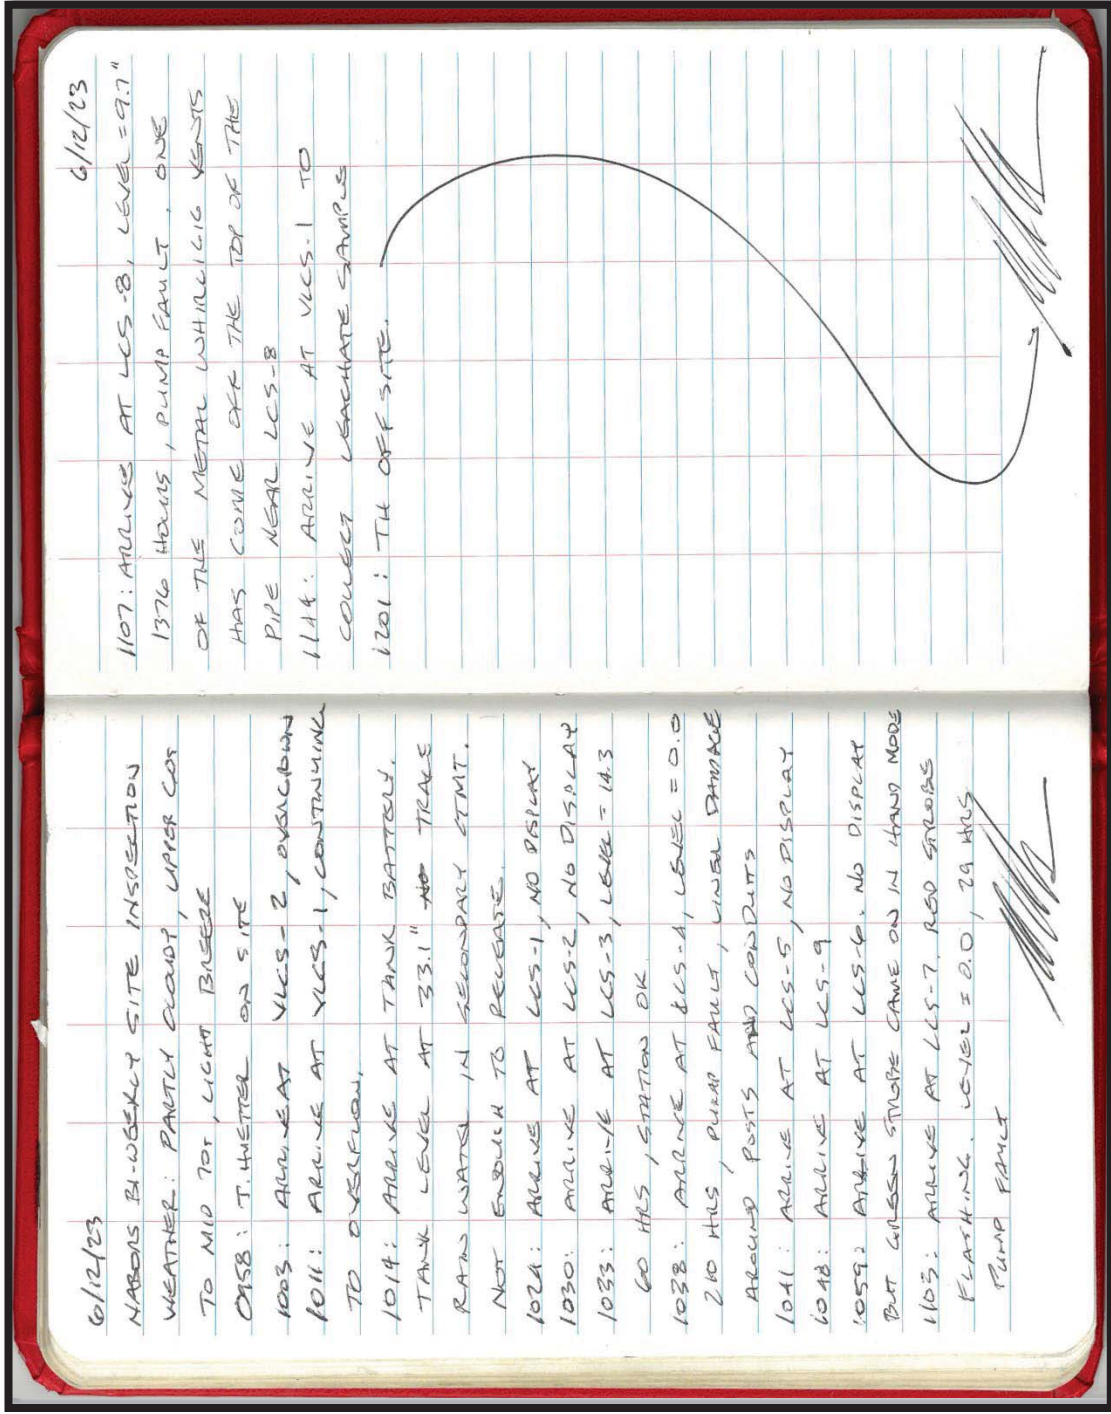 6/12/23
NABORS BI-WEEKLY SITE INSPECTION
WEATHER: PARTLY CLOUDY, UPPER 60s
TO MID 70s, LIGHT BREEZE
0958: T. HUETTER ON SITE
1003: ARRIVE AT VLCS-2, OVERGROWN
1011: ARRIVE AT VLCS-1, CONTINUING
TO OVERFLOW.
1014: ARRIVE AT TANK BATTERY.
TANK LEVEL AT 33.1" NO TRACE
RAIN WATER IN SECONDARY CTMT.
NOT ENOUGH TO RELEASE.
1024: ARRIVE AT LCS-1, NO DISPLAY
1030: ARRIVE AT LCS-2, NO DISPLAY
1033: ARRIVE AT LCS-3, LEVEL = 14.3
60 HRS, STATION OK
1038: ARRIVE AT LCS-4, LEVEL = 0.0
210 HRS, PUMP FAULT, LINER DAMAGE
AROUND POSTS AND CONDUITS
1041: ARRIVE AT LCS-5, NO DISPLAY
1048: ARRIVE AT LCS-9
1059: ARRIVE AT LCS-6. NO DISPLAY
BUT GREEN STROBE CAME ON IN HAND MODE
1103: ARRIVE AT LCS-7. RED STROBE
FLASHING. LEVEL = 0.0, 29 HRS
PUMP FAULT
6/12/23
1107: ARRIVE AT LCS-8, LEVEL = 9.7"
1376 HOURS, PUMP FAULT. ONE
OF THE METAL WHIRLIGIG VENTS
HAS COME OFF THE TOP OF THE
PIPE NEAR LCS-8
1114: ARRIVE AT VLCS-1 TO
COLLECT LEACHATE SAMPLE
1201: TH OFF SITE.